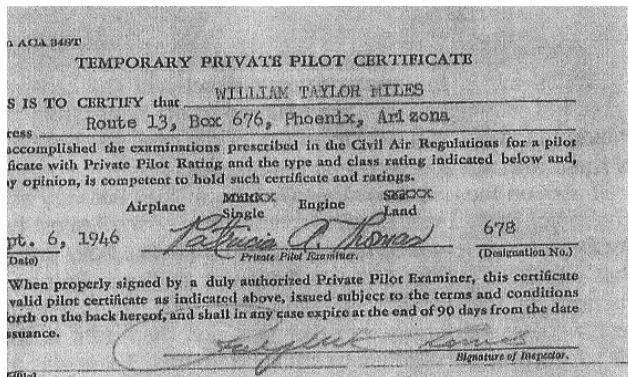 ACA 348T
TEMPORARY PRIVATE PILOT CERTIFICATE
S IS TO CERTIFY that WILLIAM TAYLOR MILES
ress Route 13, Box 676, Phoenix, Arizona
accomplished the examinations prescribed in the Civil Air Regulations for a pilot
ficate with Private Pilot Rating and the type and class rating indicated below and,
y opinion, is competent to hold such certificate and ratings.
Airplane Single Engine Land
pt. 6, 1946 Patricia A. Thomas 678
Date) Private Pilot Examiner. (Designation No.)
When properly signed by a duly authorized Private Pilot Examiner, this certificate
valid pilot certificate as indicated above, issued subject to the terms and conditions
orth on the back hereof, and shall in any case expire at the end of 90 days from the date
ssuance.
Signature of Inspector.